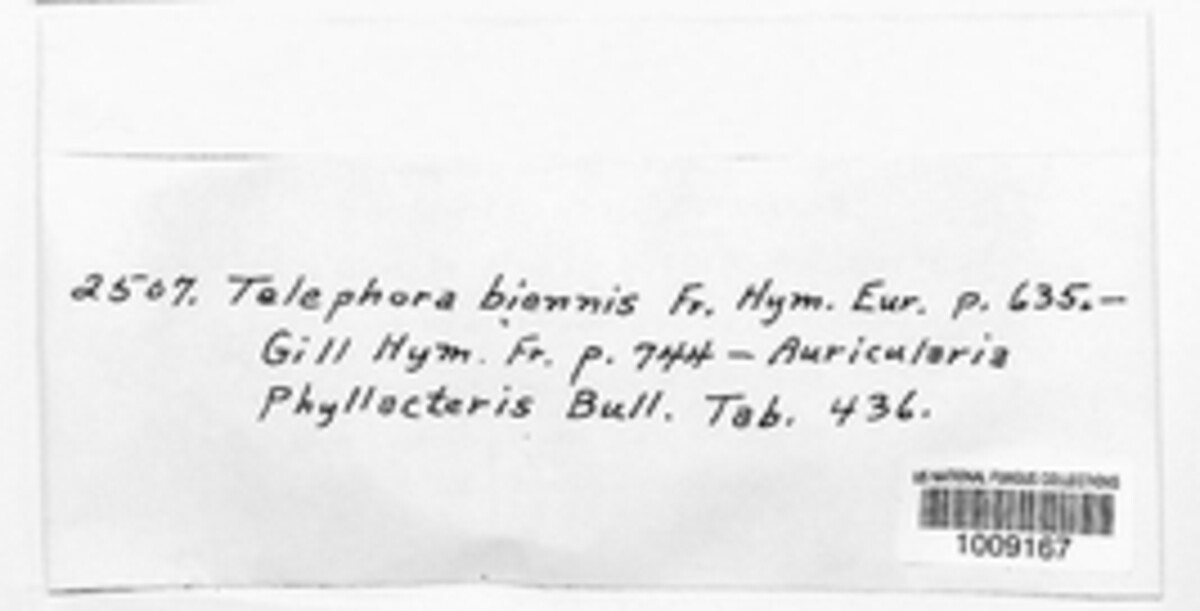 2507. Telephora biennis Fr. Hym. Eur. p. 635.—
Gill Hym. Fr. p. 744 — Auricularia
Phyllacteris Bull. Tab. 436.
US NATIONAL FUNGUS COLLECTIONS
1009167